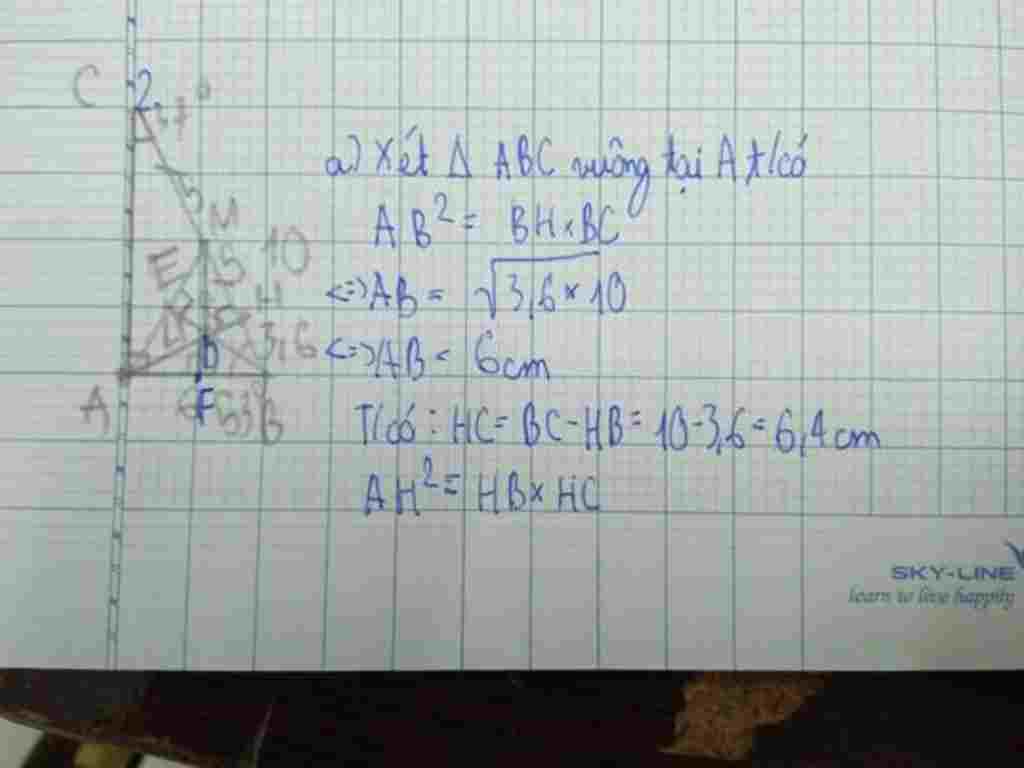 C
2
37°
5
M
E 5 10
H
3,6
D
A
F 53° B
a) Xét Δ ABC vuông tại A t/có
AB² = BH×BC
<=> AB = √3,6×10
<=> AB = 6cm
T/có : HC = BC-HB = 10-3,6 = 6,4cm
AH² = HB×HC
SKY-LINE
learn to live happily